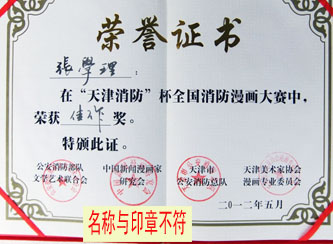 荣誉证书
張學理：
在“天津消防”杯全国消防漫画大赛中，
荣获 佳作 奖。
特颁此证。
公安消防部队 中国新闻漫画家 天津市 天津美术家协会
文学艺术联合会 研究会 公安消防总队 漫画专业委员会
二〇一二年五月
名称与印章不符